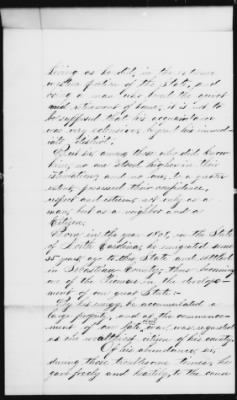 living as he did, in the extreme
western portion of the State, and
being a man who loved the quiet
and retirement of home, it is not to
be supposed that his acquaintance
was very extensive beyond his immedi-
ate district.
But by among those who did know
him, no one stood higher in their
estimation, and no one, to a greater
extent, possessed their confidence,
respect and esteem, not only as a
man, but as a neighbor and a
Citizen.
Born in the year 1804, in the State
of North Carolina, he emigrated some
35 years ago to this State and settled
in Sebastian County; thus becoming
one of the Pioneers in the develope-
ment of our great State.
By his energy he accumulated a
large property, and at the commence-
ment of our late war was regarded
as the wealthiest citizen of his county.
Of his abundance, on,
during those troublesome times he
gave freely and heartily, to the cause